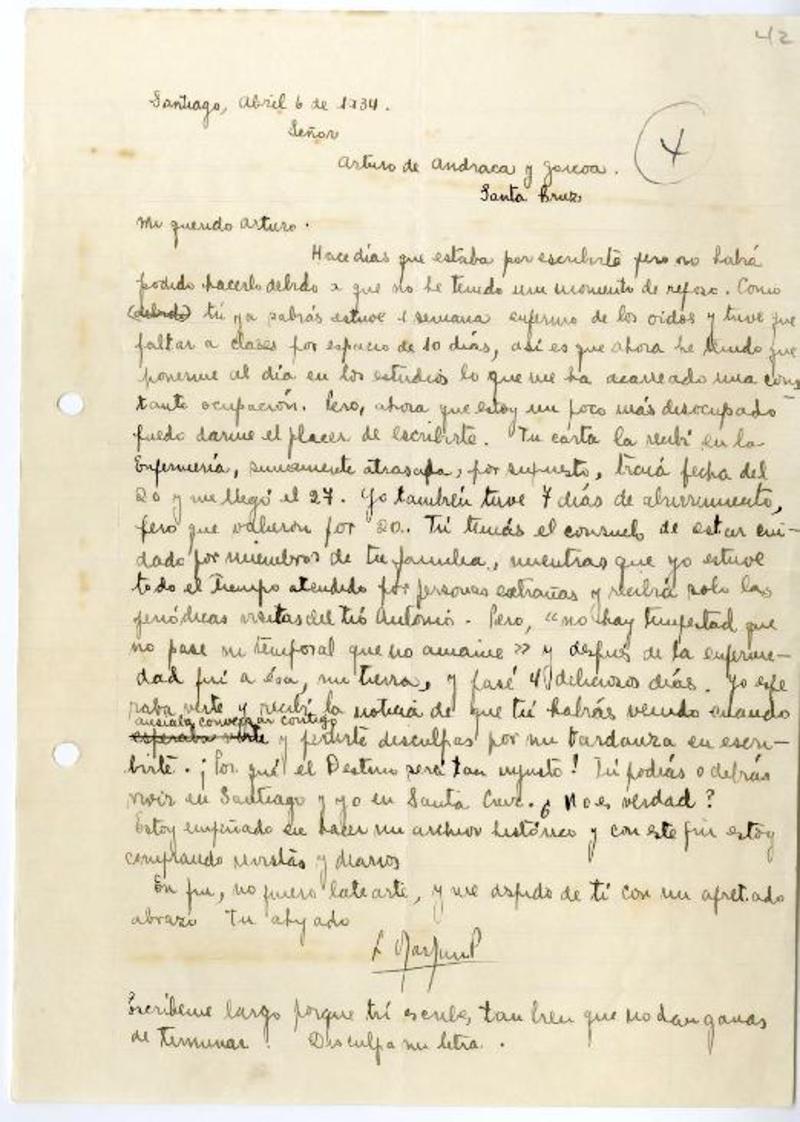 42
Santiago, Abril 6 de 1934.
Señor
4
Arturo de Andraca y
Santa Cruz
Mi querido Arturo.
Hace días que estaba por escribirte pero no había
podido hacerlo debido a que no he tenido un momento de reposo. Como
(debido) tú ya sabrás estuve 1 semana enfermo de los oídos y tuve que
faltar a clases por espacio de 10 días, así es que ahora he tenido que
ponerme al día en los estudios lo que me ha acarreado una cons-
tante ocupación. Pero, ahora que estoy un poco más desocupado
puedo darme el placer de escribirte. Tu carta la recibí en la
Enfermería, sumamente atrasada, por supuesto, traía fecha del
20 y me llegó el 27. Yo también tuve 7 días de aburrimiento,
pero que valieron por 20. Tú tenías el consuelo de estar cui-
dado por miembros de tu familia, mientras que yo estuve
todo el tiempo atendido por personas extrañas y recibía solo las
periódicas visitas del tío Antonio. Pero, "no hay tempestad que
no pase ni temporal que no amaine" y después de la enferme-
dad fui a ésa, mi tierra, y pasé 4 deliciosos días. Yo espe
raba verte y recibí la noticia de que tú habías venido cuando
ansiaba conversar contigo
esperaba verte y pedirte disculpas por mi tardanza en escri-
birte. ¡Por qué el Destino será tan injusto! Tú podías o debías
vivir en Santiago y yo en Santa Cruz. ¿No es verdad?
Estoy empeñado en hacer un archivo histórico y con este fin estoy
comprando revistas y diarios
En fin, no quiero latearte, y me despido de ti con un apretado
abrazo Tu ahijado
Escríbeme largo porque tú escribes tan bien que no dan ganas
de terminar. Disculpa mi letra.